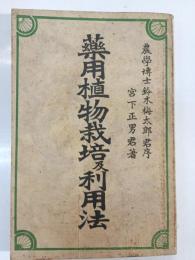 農學博士鈴木梅太郎君序
宮下正男君著
藥用植物栽培及利用法